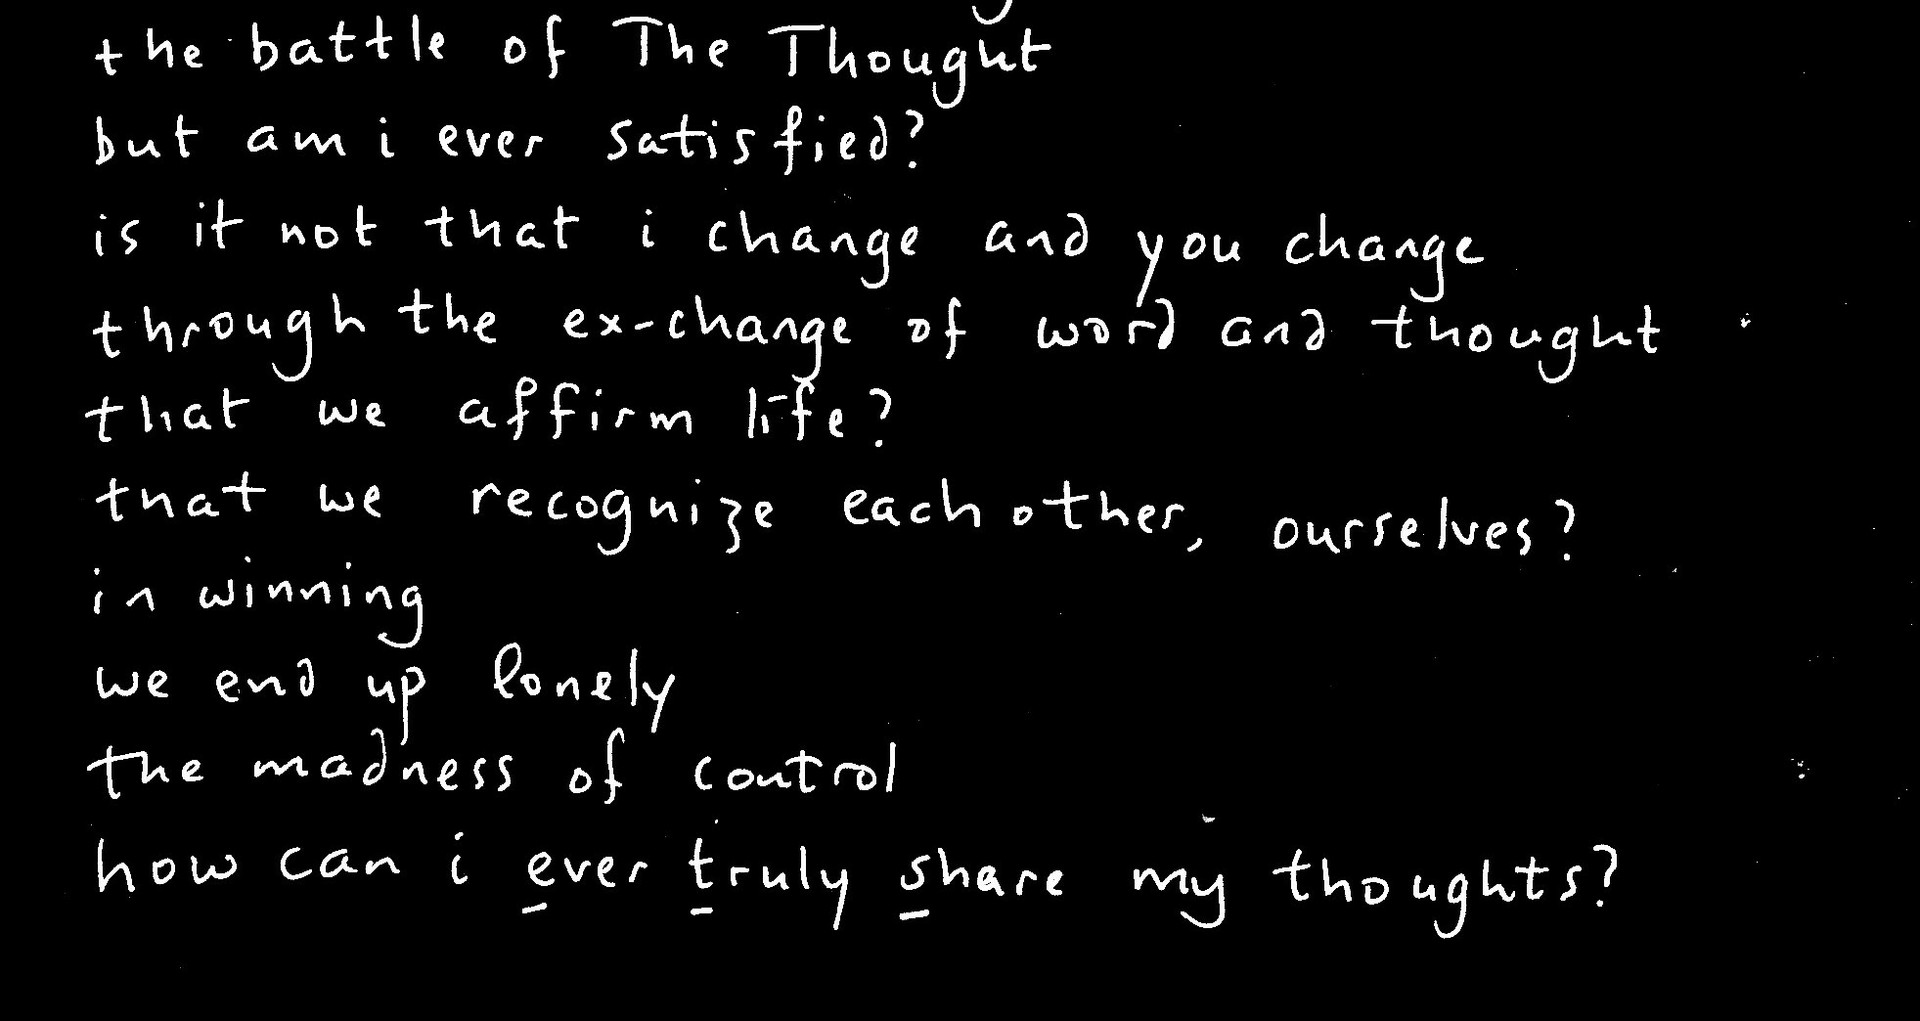 the battle of The Thought
but am i ever satisfied?
is it not that i change and you change
through the ex-change of word and thought
that we affirm life?
that we recognize each other, ourselves?
in winning
we end up lonely
the madness of control
how can i ever truly share my thoughts?